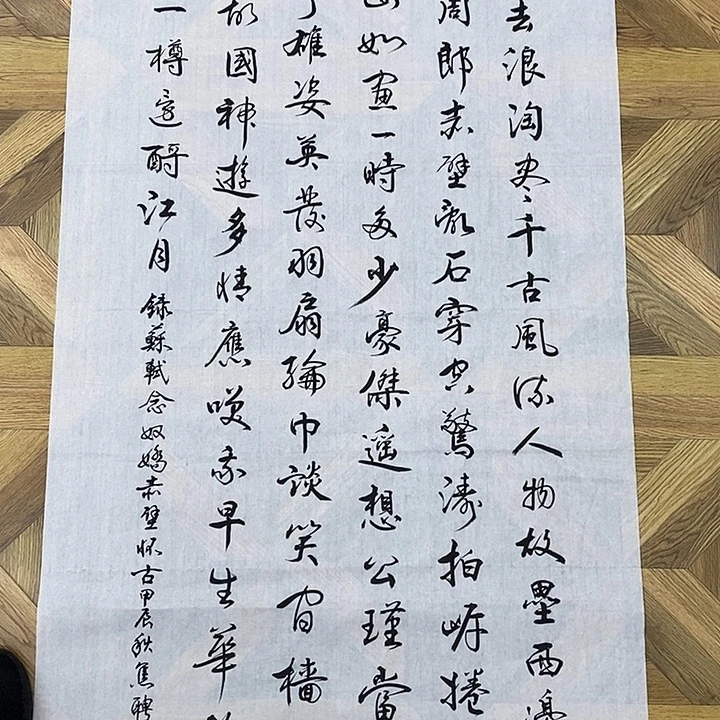 去浪淘尽千古風流人物故壘西邊
周郎赤壁亂石穿空驚濤拍岸捲
如畫一時多少豪傑遥想公瑾當
雄姿英發羽扇綸巾談笑間檣
故國神遊多情應笑我早生華
一樽還酹江月
録蘇軾念奴嬌赤壁懷古甲辰秋焦聘